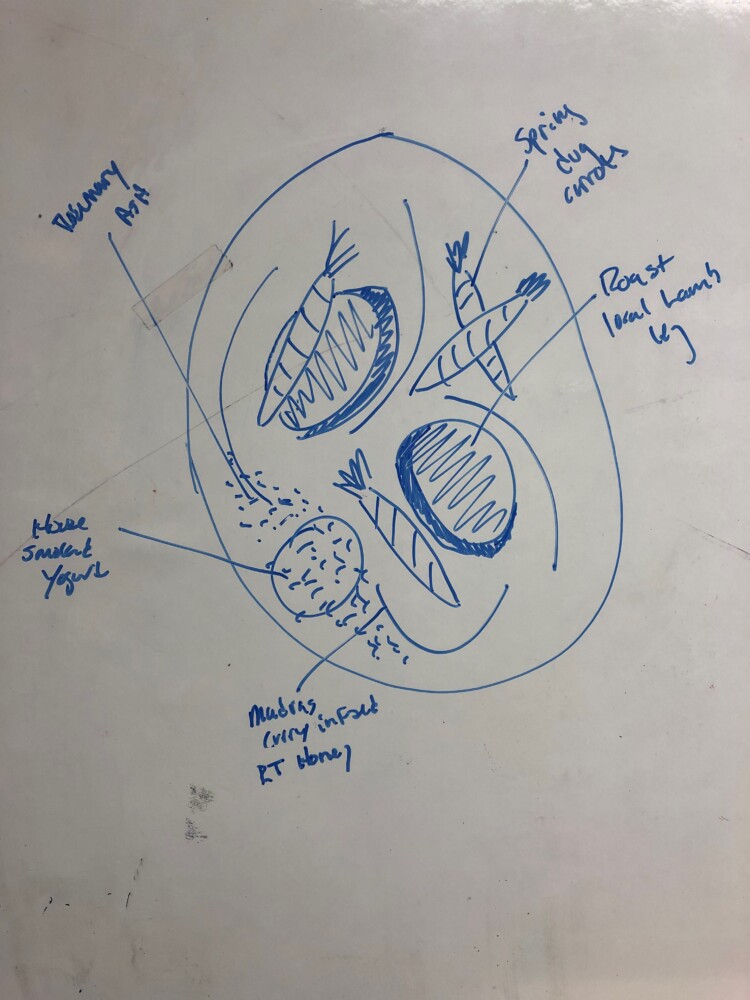 Spring
dug
carrots
Rosemary
ASH
Roast
local Lamb
leg
House
Smoked
Yogurt
Madras
Curry infused
RT Honey